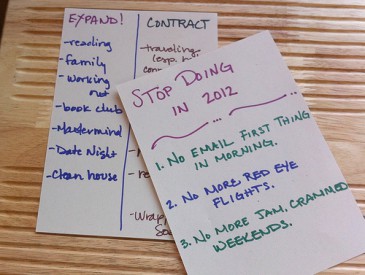 EXPAND!
-reading
-family
-working
out
-book club
-Mastermind
-Date Night
-Clean house
CONTRACT
-traveling
(esp.
STOP DOING
IN 2012
...
...
1. NO EMAIL FIRST THING
IN MORNING.
2. NO MORE RED EYE
FLIGHTS.
3. NO MORE JAM. CRAMMED
WEEKENDS.